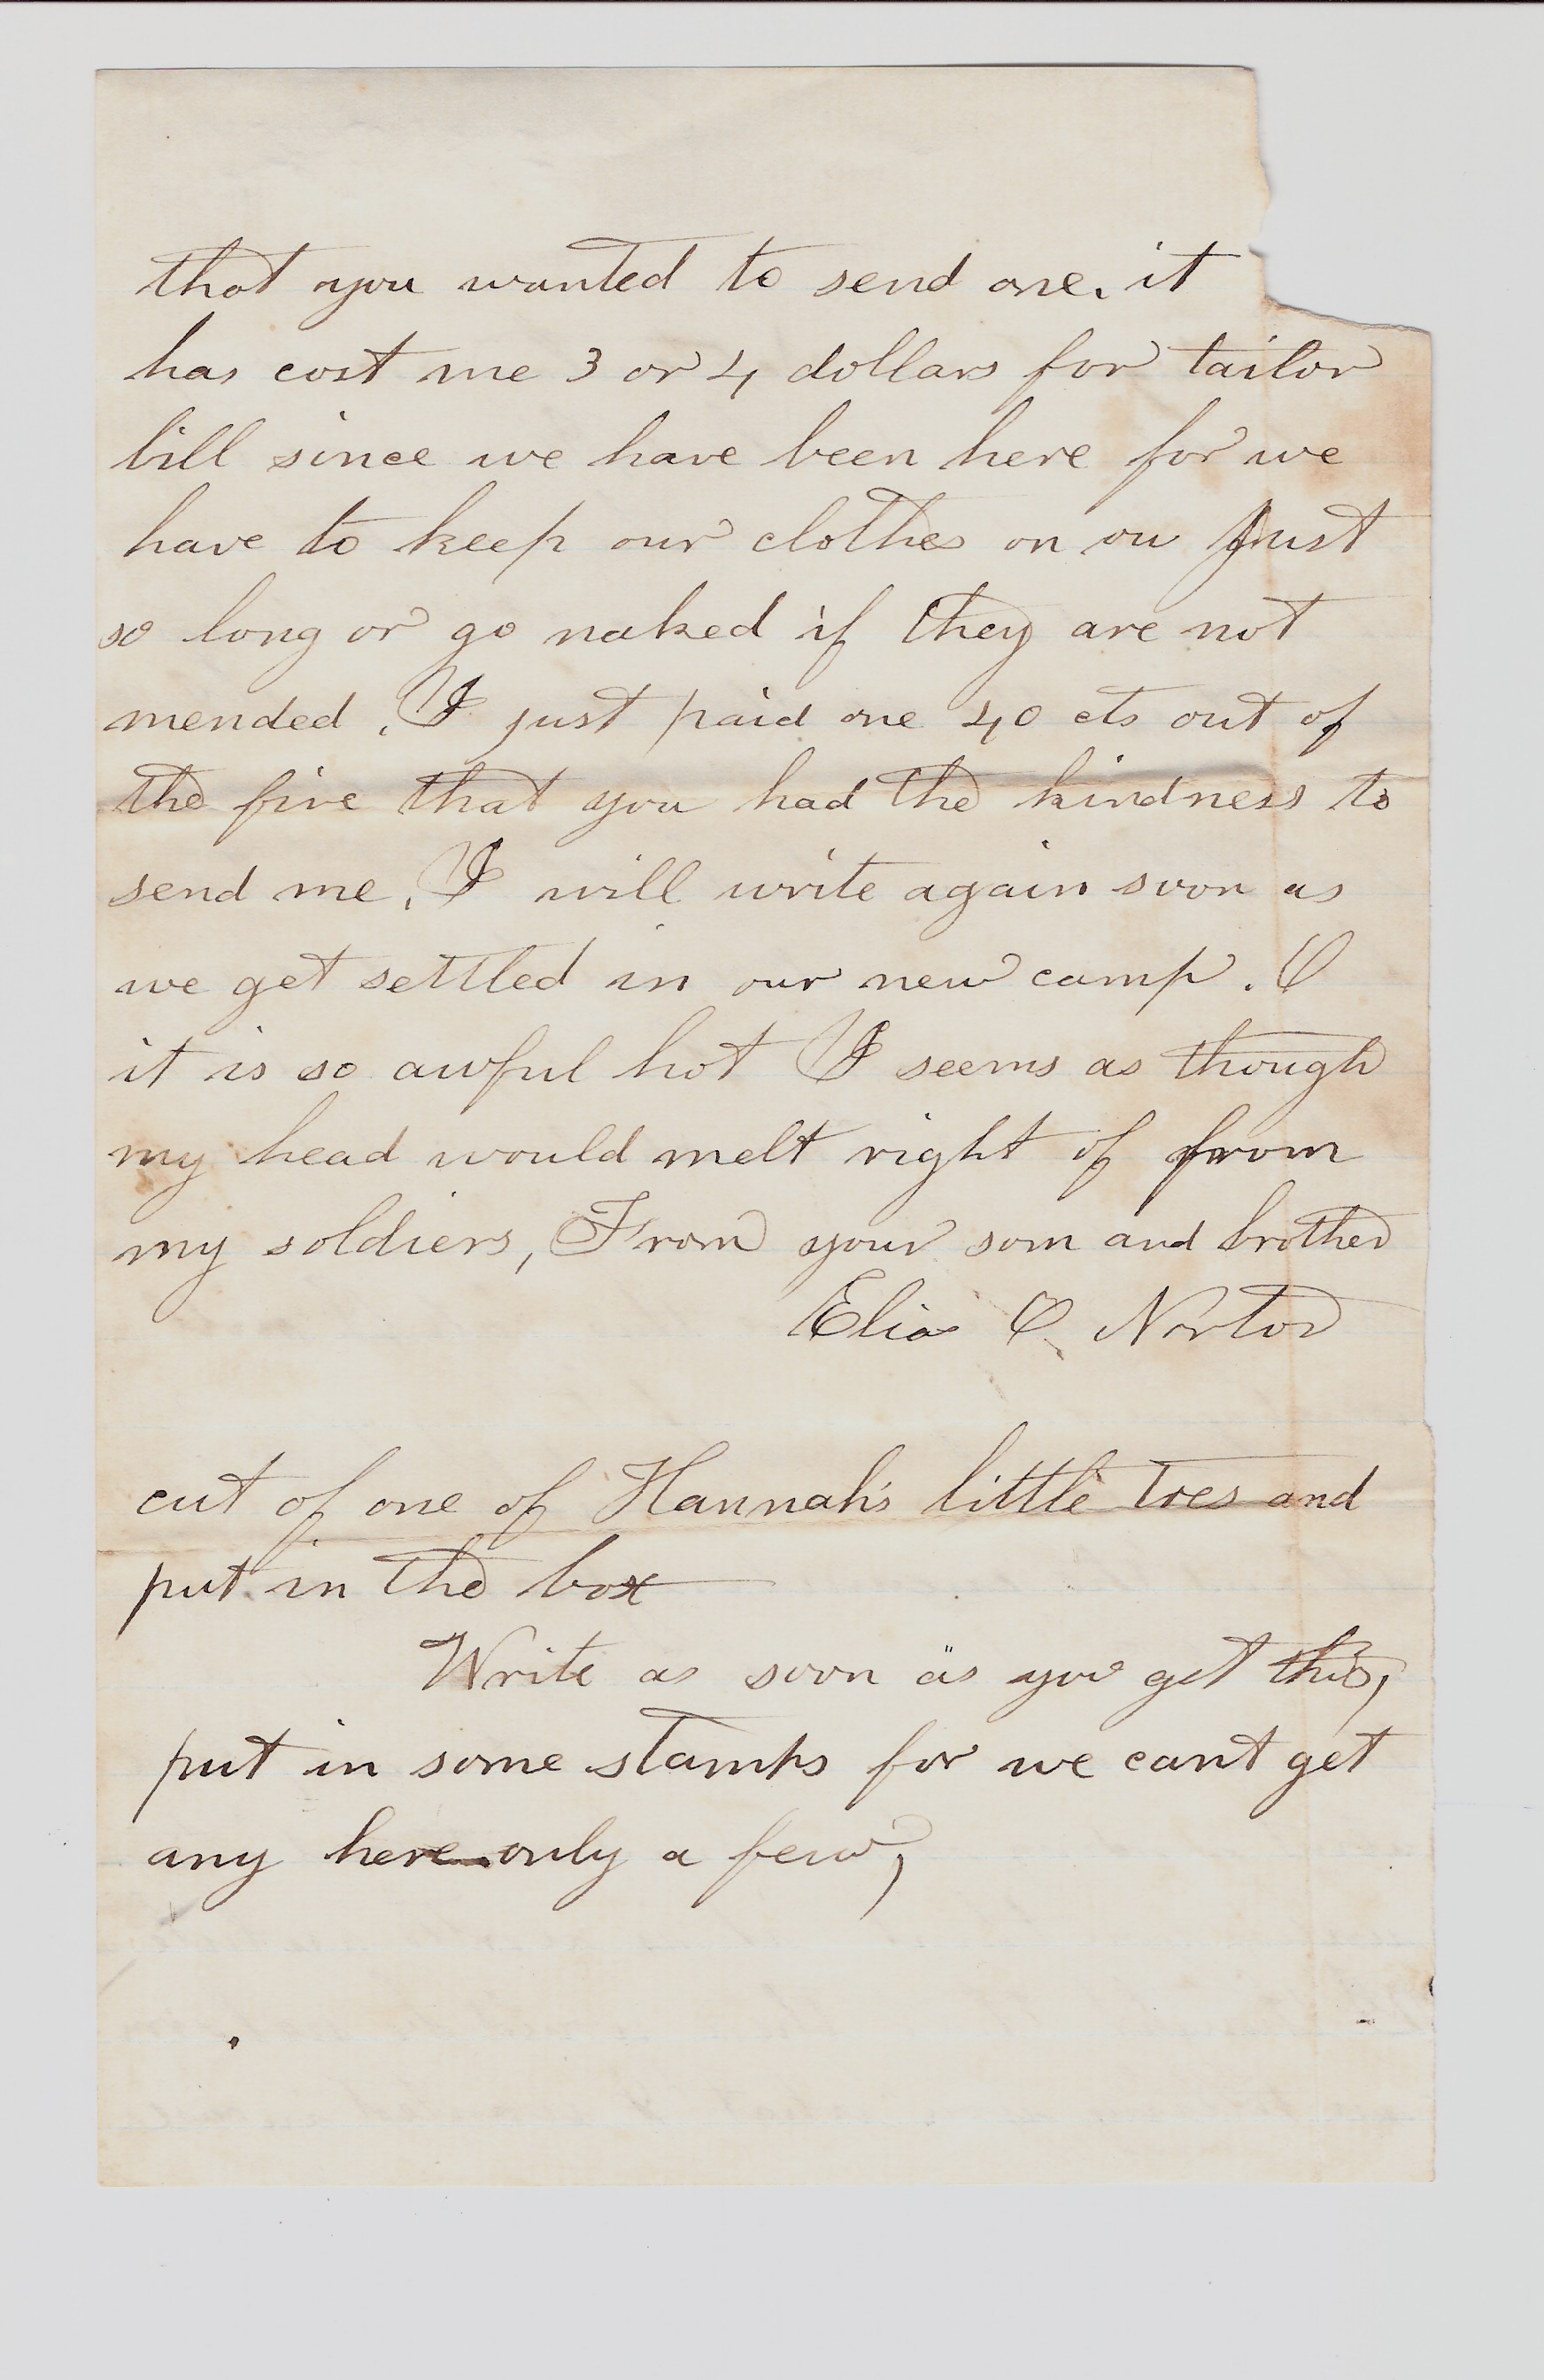 that you wanted to send one. it
has cost me 3 or 4 dollars for tailor
bill since we have been here for we
have to keep our clothes on ou just
so long or go naked if they are not
mended. I just paid one 40 cts out of
the five that you had the kindness to
send me. I will write again soon as
we get settled in our new camp. O
it is so awful hot I seems as though
my head would melt right of from
my soldiers, From your som and brother
Elias O. Norton
cut of one of Hannah's little toes and
put in the box
Write as soon as you get this,
put in some stamps for we cant get
any here only a few,